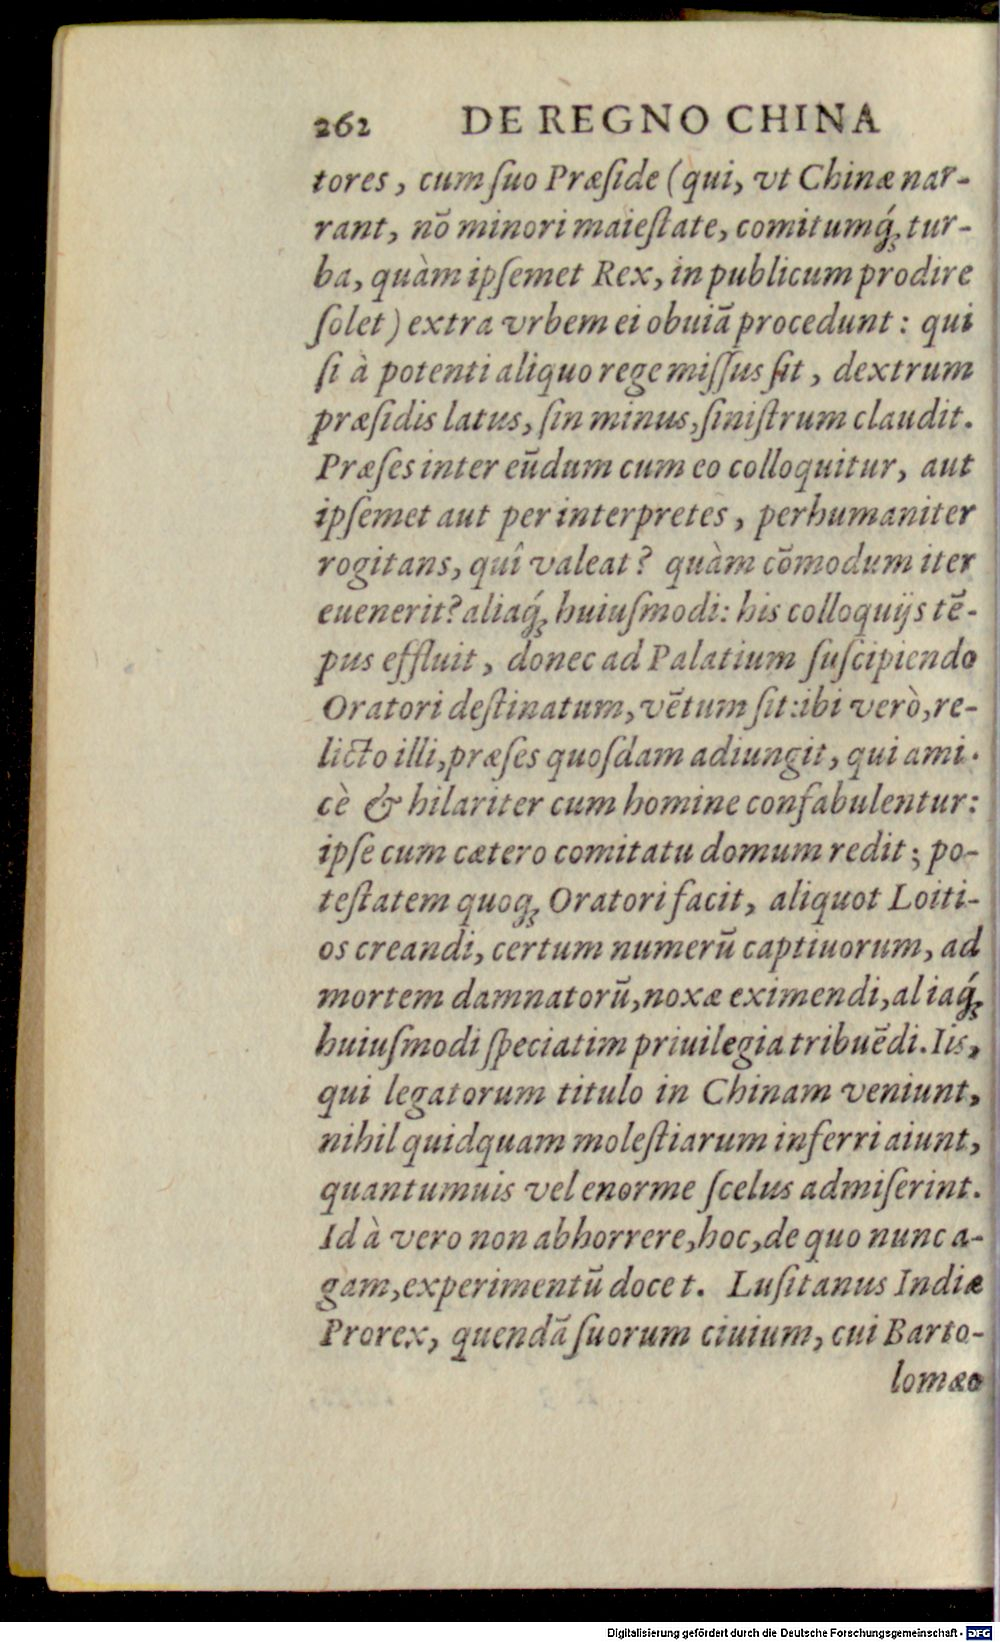 262 DE REGNO CHINA
tores, cum ſuo Præſide (qui, vt Chinæ nar-
rant, nõ minori maieſtate, comitumq́ꝫ tur-
ba, quàm ipſemet Rex, in publicum prodire
ſolet) extra vrbem ei obuiã procedunt: qui
ſi à potenti aliquo rege miſſus ſit, dextrum
præſidis latus, ſin minus, ſiniſtrum claudit.
Præſes inter eũdum cum eo colloquitur, aut
ipſemet aut per interpretes, perhumaniter
rogitans, quî valeat? quàm cõmodum iter
euenerit? aliaq́ꝫ huiuſmodi: his colloquijs tẽ-
pus effluit, donec ad Palatium ſuſcipiendo
Oratori deſtinatum, vẽtum ſit: ibi verò, re-
licto illi, præſes quoſdam adiungit, qui ami-
cè & hilariter cum homine confabulentur:
ipſe cum cætero comitatu domum redit; po-
teſtatem quoqꝫ Oratori facit, aliquot Loiti-
os creandi, certum numerũ captiuorum, ad
mortem damnatorũ, noxæ eximendi, aliaq́ꝫ
huiuſmodi ſpeciatim priuilegia tribuẽdi. Iis,
qui legatorum titulo in Chinam veniunt,
nihil quidquam moleſtiarum inferri aiunt,
quantumuis vel enorme ſcelus admiſerint.
Id à vero non abhorrere, hoc, de quo nunc a-
gam, experimentũ docet. Luſitanus Indiæ
Prorex, quendã ſuorum ciuium, cui Barto-
lomæo
Digitalisierung gefördert durch die Deutsche Forschungsgemeinschaft - DFG